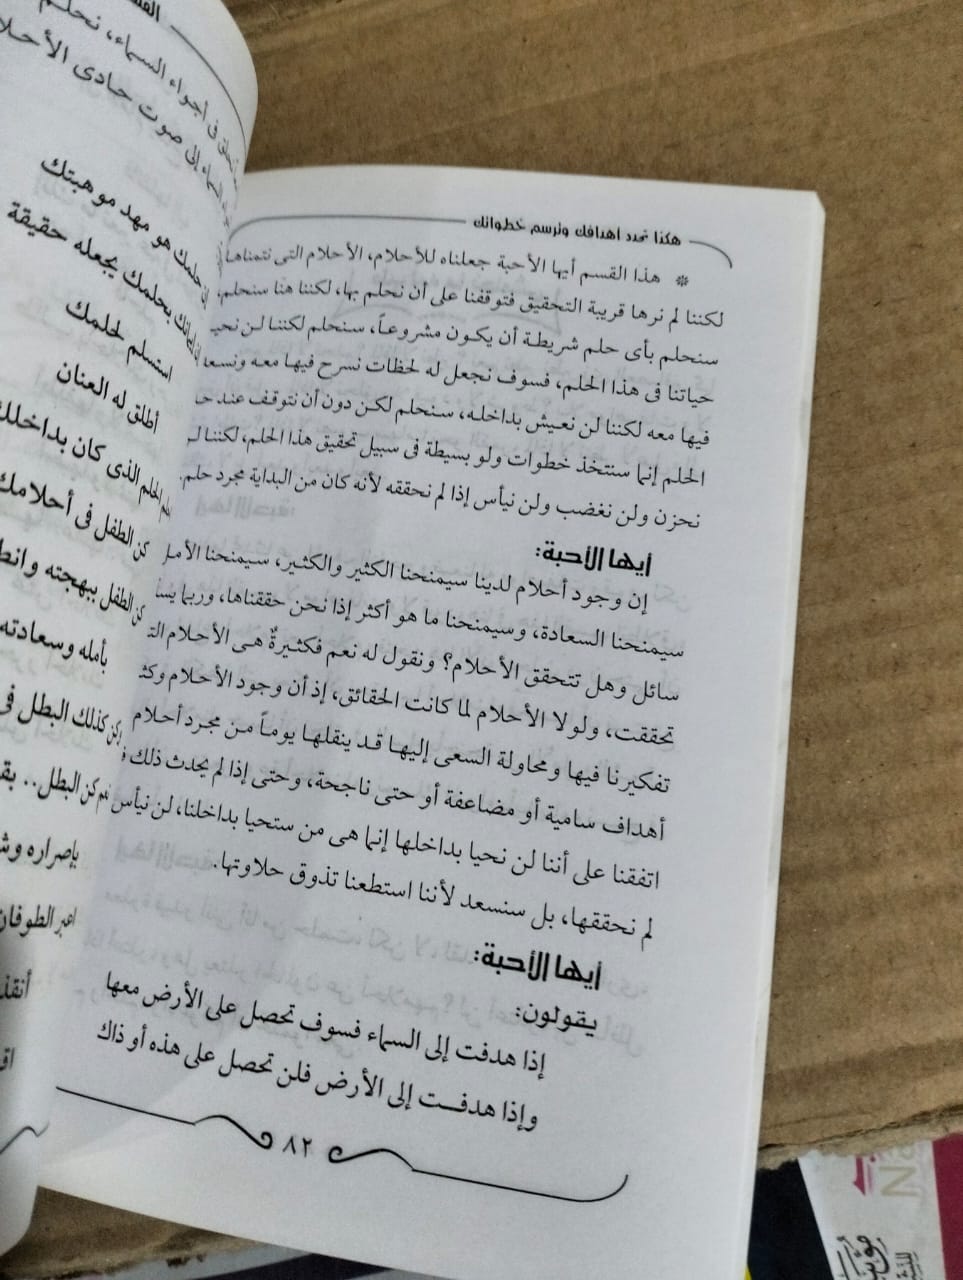 هكذا تحدد اهدافك وترسم خطواتك
* هذا القسم أيها الأحبة جعلناه للأحلام، الأحلام التى نتمناها
لكننا لم نرها قريبة التحقيق فتوقفنا على أن نحلم بها، لكننا هنا سنحلم،
سنحلم بأى حلم شريطة أن يكون مشروعاً، سنحلم لكننا لن
حياتنا فى هذا الحلم، فسوف نجعل له لحظات نسرح فيها معه
فيها معه لكننا لن نعيش بداخله، سنحلم لكن دون أن نتوقف عند
الحلم إنما سنتخذ خطوات ولو بسيطة فى سبيل تحقيق هذا الحلم، لكننا
نحزن ولن نغضب ولن نيأس إذا لم نحققه لأنه كان من البداية مجرد حلم.
أيها الأحبة:
إن وجود أحلام لدينا سيمنحنا الكثير والكثير، سيمنحنا
سيمنحنا السعادة، وسيمنحنا ما هو أكثر إذا نحن حققناها، وربما
سائل وهل تتحقق الأحلام؟ ونقول له نعم فكثيرةٌ هى الأحلام
تحققت، ولولا الأحلام لما كانت الحقائق، إذ أن وجود الأحلام
تفكيرنا فيها ومحاولة السعى إليها قد ينقلها يوماً من مجرد أحلام
أهداف سامية أو مضاعفة أو حتى ناجحة، وحتى إذا لم يحدث ذلك
اتفقنا على أننا لن نحيا بداخلها إنما هى من ستحيا بداخلنا، لن نيأس
لم نحققها، بل سنسعد لأننا استطعنا تذوق حلاوتها.
أيها الأحبة:
يقولون:
إذا هدفت إلى السماء فسوف تحصل على الأرض معها
وإذا هدفت إلى الأرض فلن تحصل على هذه أو ذاك
٨٢
فى أجواء السماء، نحلم
إلى صوت حادى
حلمك هو مهد موهبتك
بحلمك يجعله حقيقة
استسلم لحلمك
أطلق له العنان
الحلم الذى كان بداخلك
كن الطفل فى أحلامك
كن الطفل ببهجته
بأمله وسعادته
كن كذلك البطل فى
كن البطل..
بإصراره
اعبر الطوفان